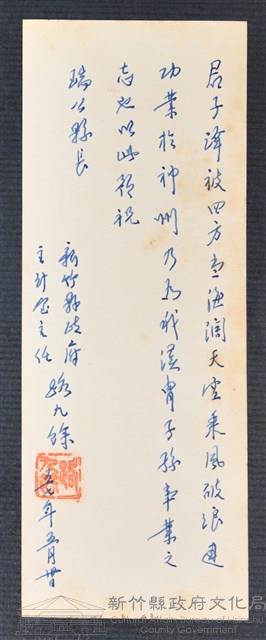 君子澤被四方當海闊天空乘風破浪建
功業於神州乃為我漢胄子孫事業之
志也以此預祝
瑞公縣長
新竹縣政府
主計室主任 路九餘
五七年五月廿
新竹縣政府文化局
County Government